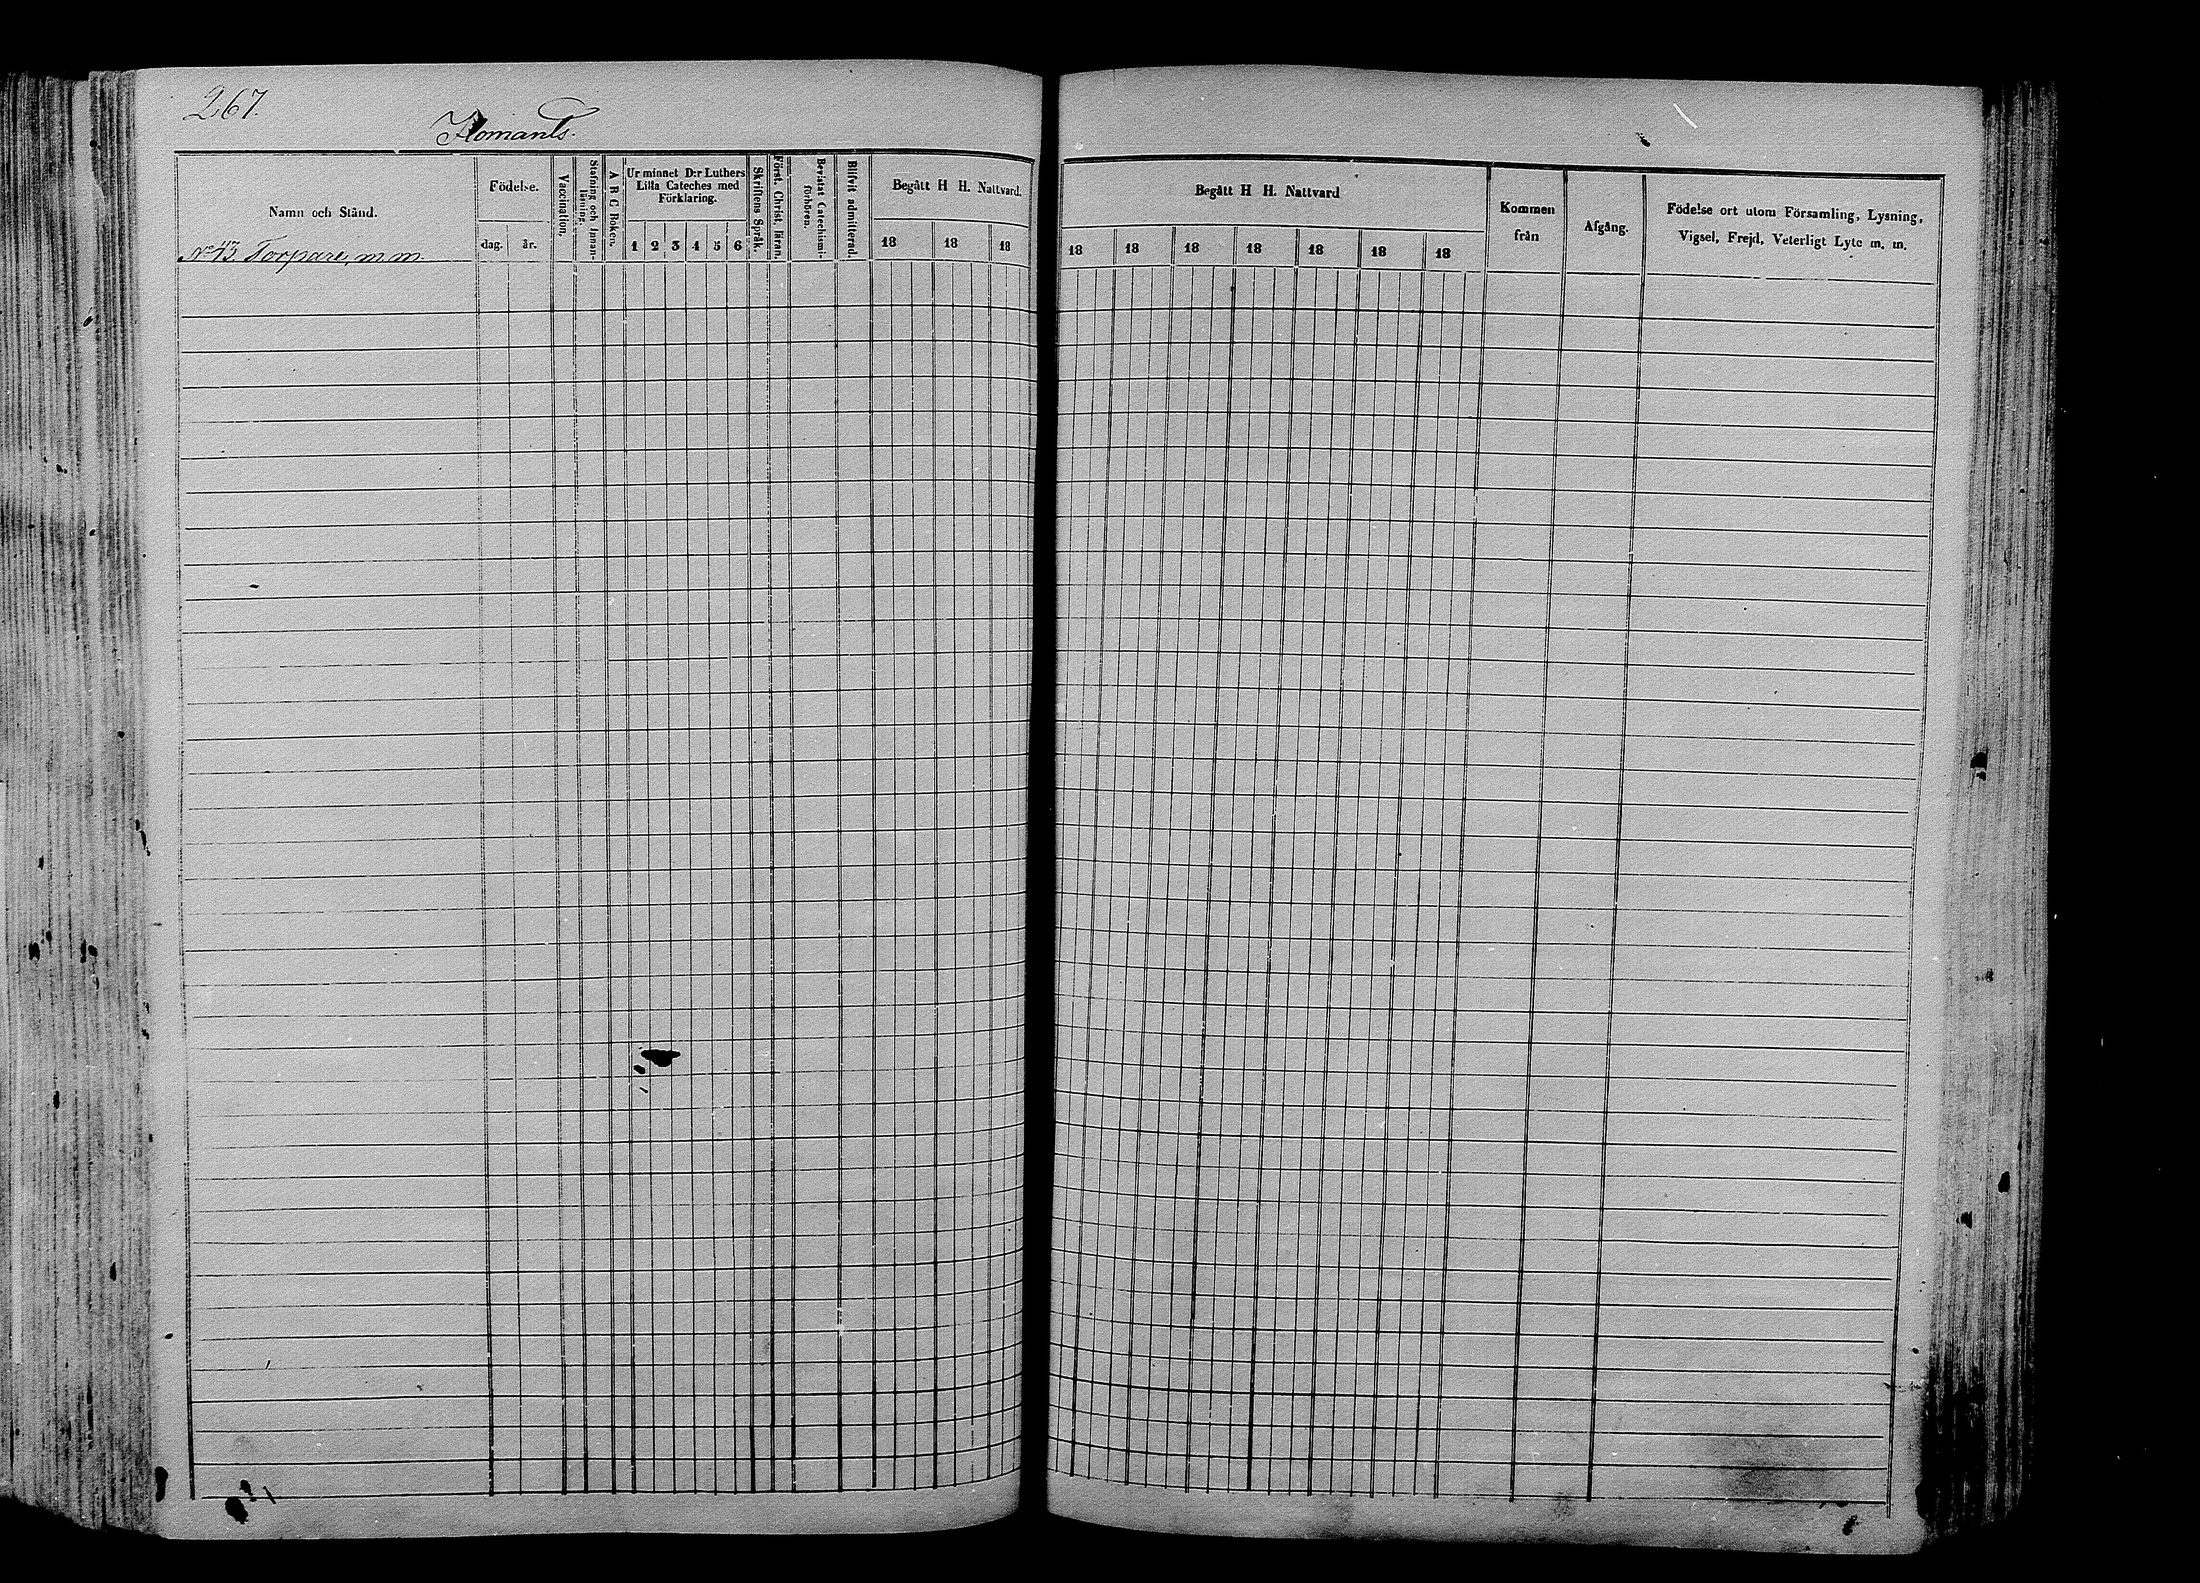 267.
Ilomants.
Namn och Stånd.
Födelse.
dag. år.
Vaccination,
Stafning och Innan-
läsning.
A B C Boken.
Ur minnet D:r Luthers
Lilla Cateches med
Förklaring.
1 2 3 4 5 6
Skriftens Språk.
Först. Christ. läran.
Bevistat Catechismi-
förhören.
Blifvit admitterad.
Begått H H. Nattvard.
18 18 18
No 43 Torpare, m.m.
Begått H H. Nattvard
18 18 18 18 18 18 18
Kommen
från
Afgång.
Födelse ort utom Församling, Lysning,
Vigsel, Frejd, Veterligt Lyte m. m.